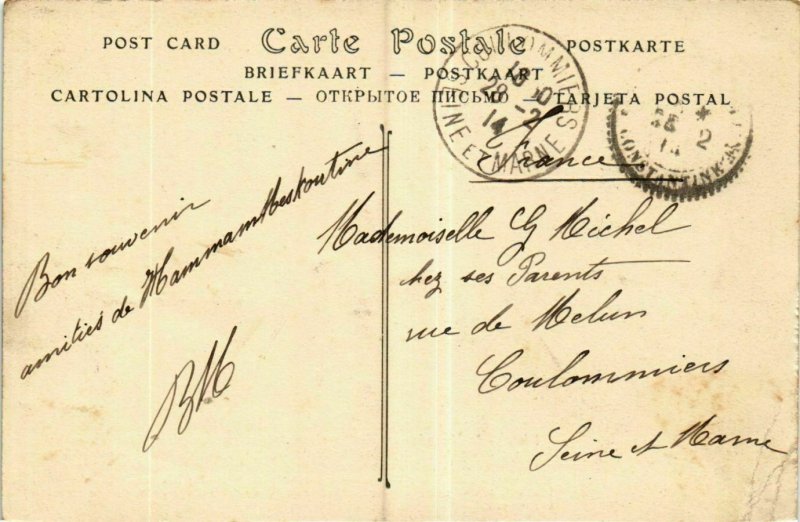 POST CARD Carte Postale POSTKARTE
BRIEFKAART — POSTKAART
CARTOLINA POSTALE — ОТКРЫТОЕ ПИСЬМО — TARJETA POSTAL
COULOMMIERS
10 50
28 -2
14
SEINE ET MARNE
CONSTANTINE
2
14
France
Bon souvenir
amitiés de Hammam Meskoutine
BM
Mademoiselle G Michel
chez ses Parents
rue de Melun
Coulommiers
Seine et Marne